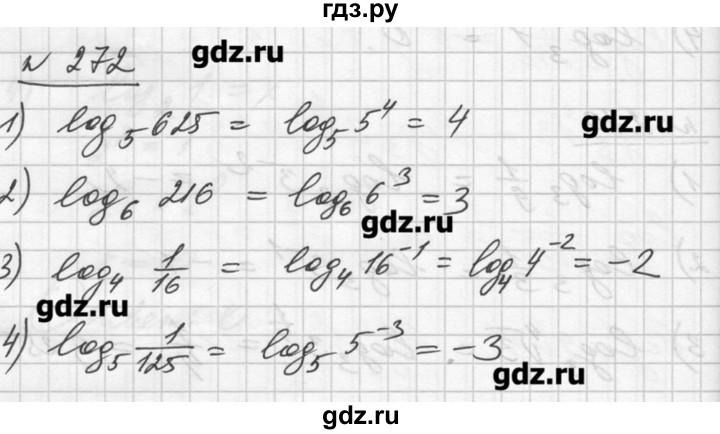 гдз.ру
№ 272
gdz.ru
1) log₅ 625 = log₅ 5⁴ = 4
gdz.ru
2) log₆ 216 = log₆ 6³ = 3
gdz.ru
3) log₄ 1/16 = log₄ 16⁻¹ = log₄ 4⁻² = -2
gdz.ru
4) log₅ 1/125 = log₅ 5⁻³ = -3
gdz.ru
gdz.ru